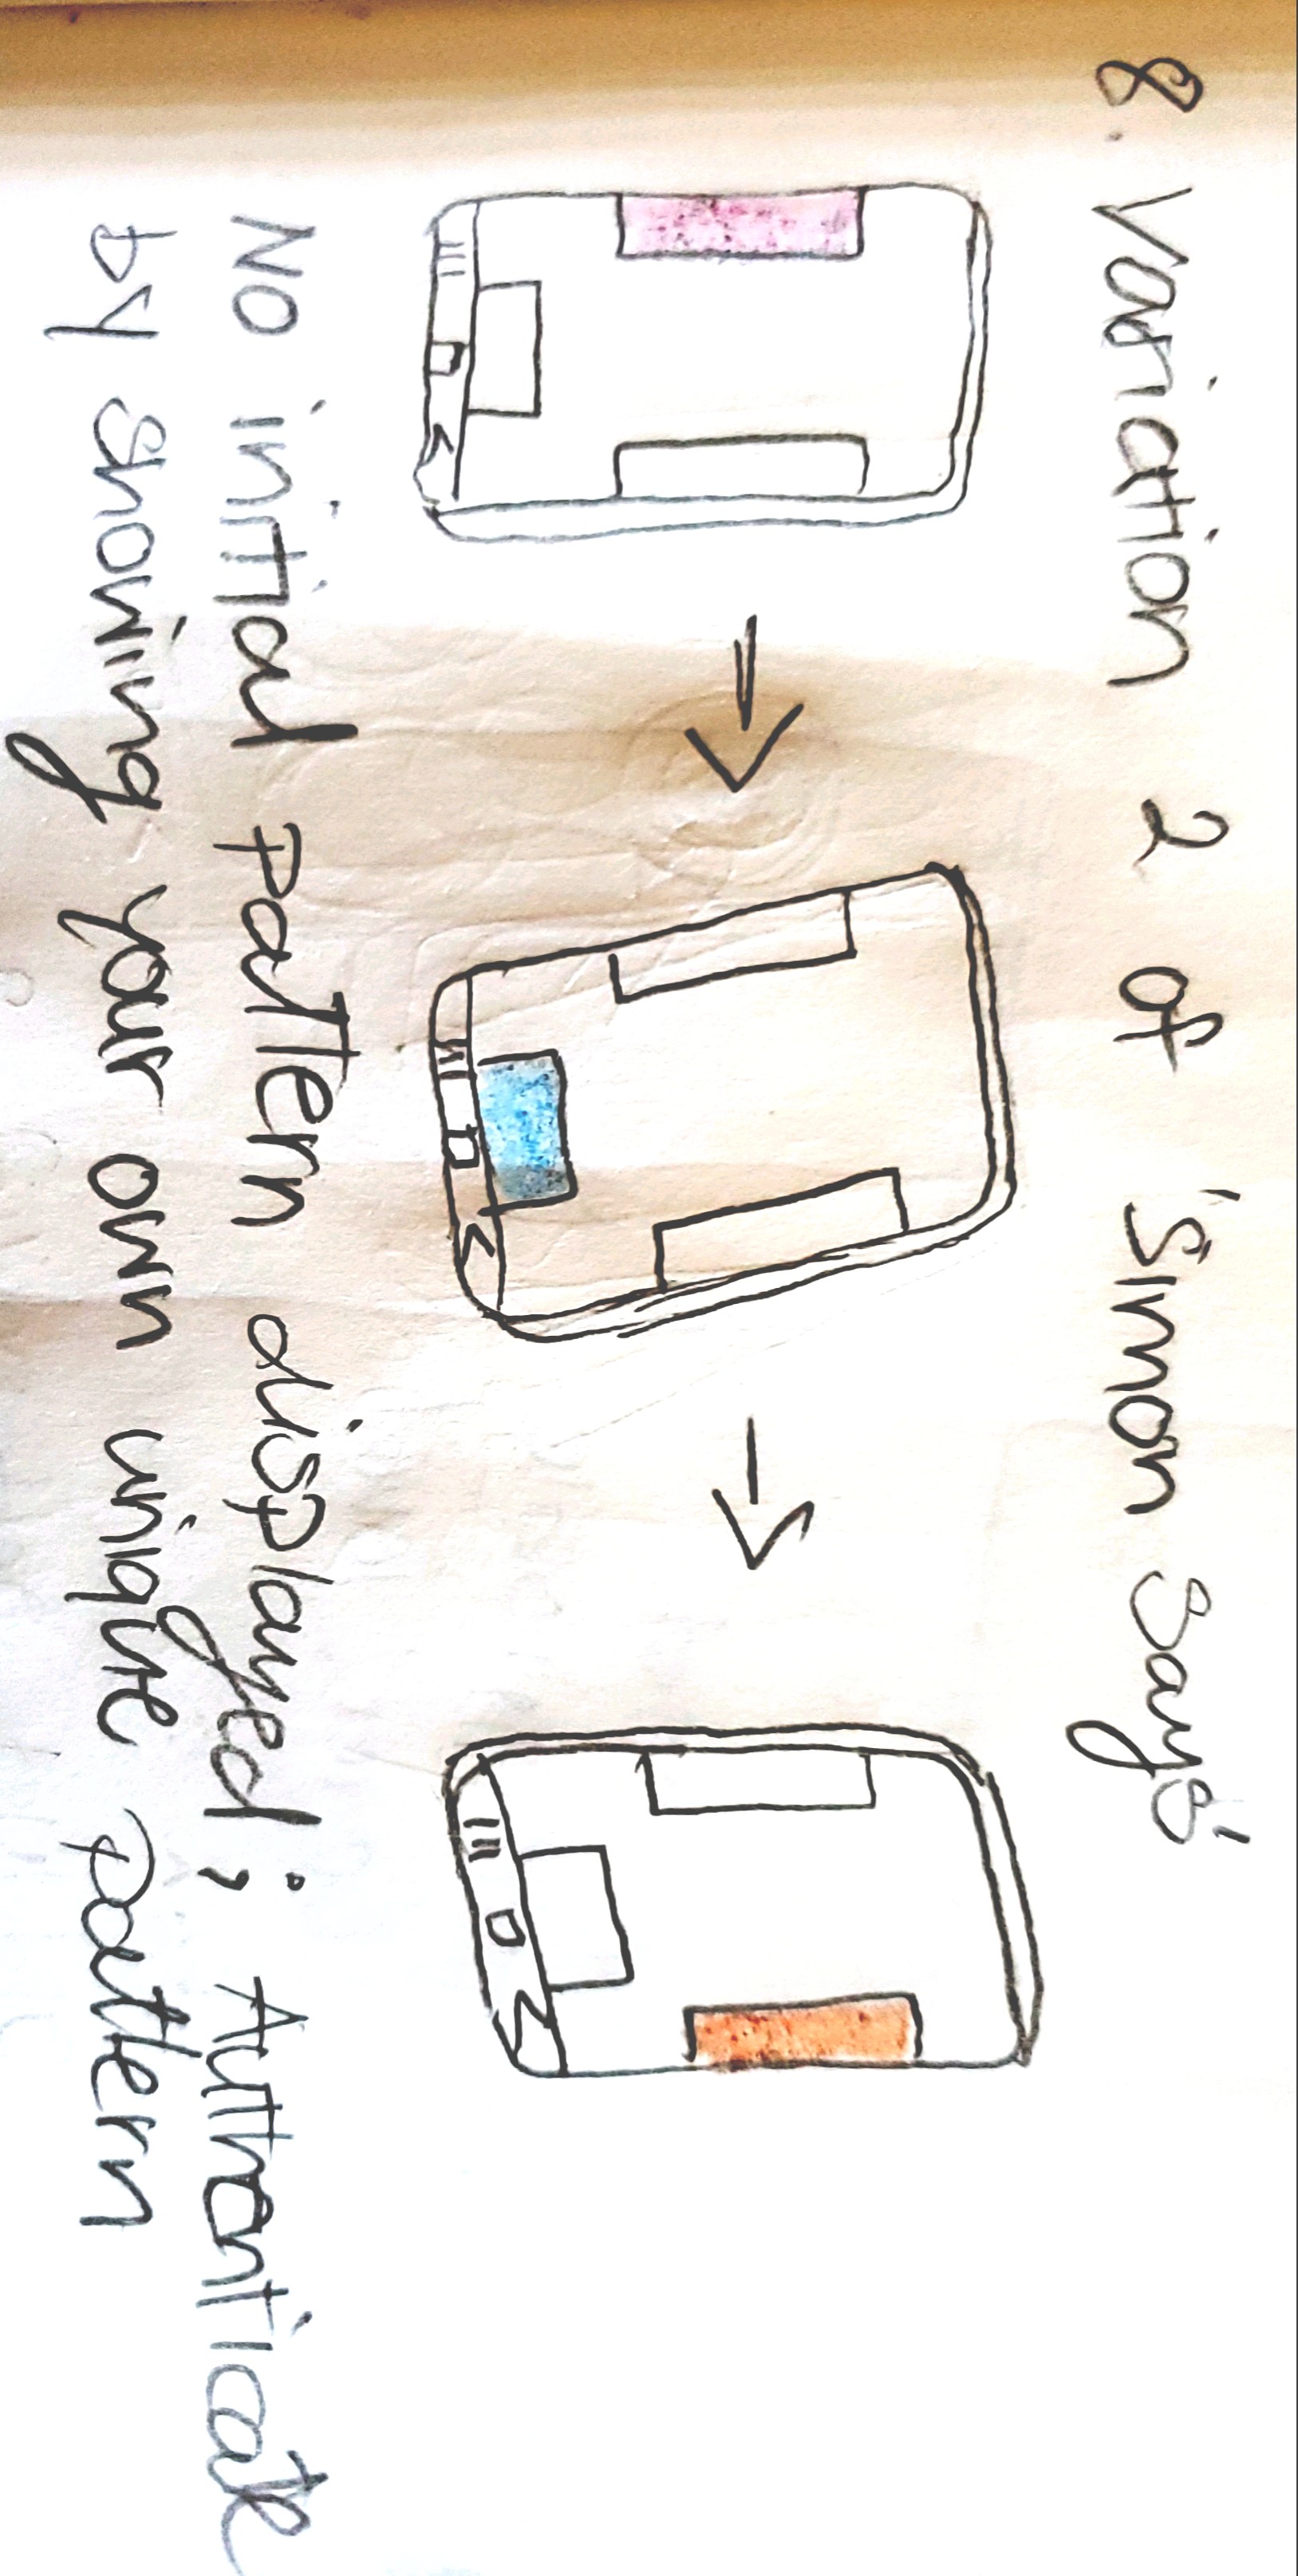 8. Variation 2 of 'Simon Says'
No initial pattern displayed; Authenticate
by showing your own unique pattern